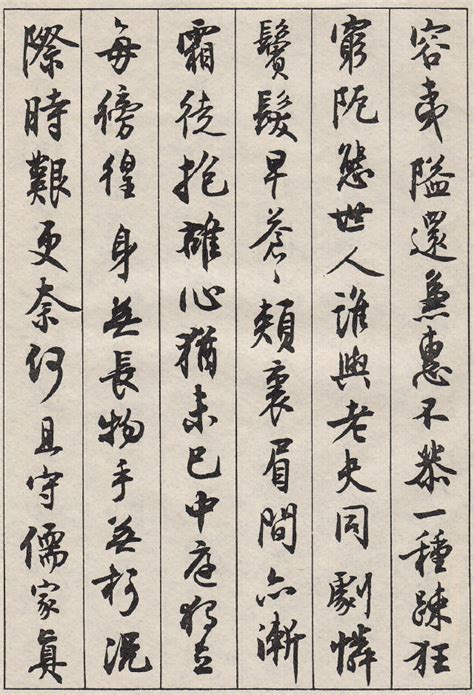 容夷隘還兼惠不恭一種疎狂
窮阨態世人誰與老夫同劇憐
鬢髮早蒼〻頰裏眉間亦漸
霜徒抱雄心猶未已中庭獨立
每徬徨身無長物手無柯況
際時艱更奈何且守儒家真